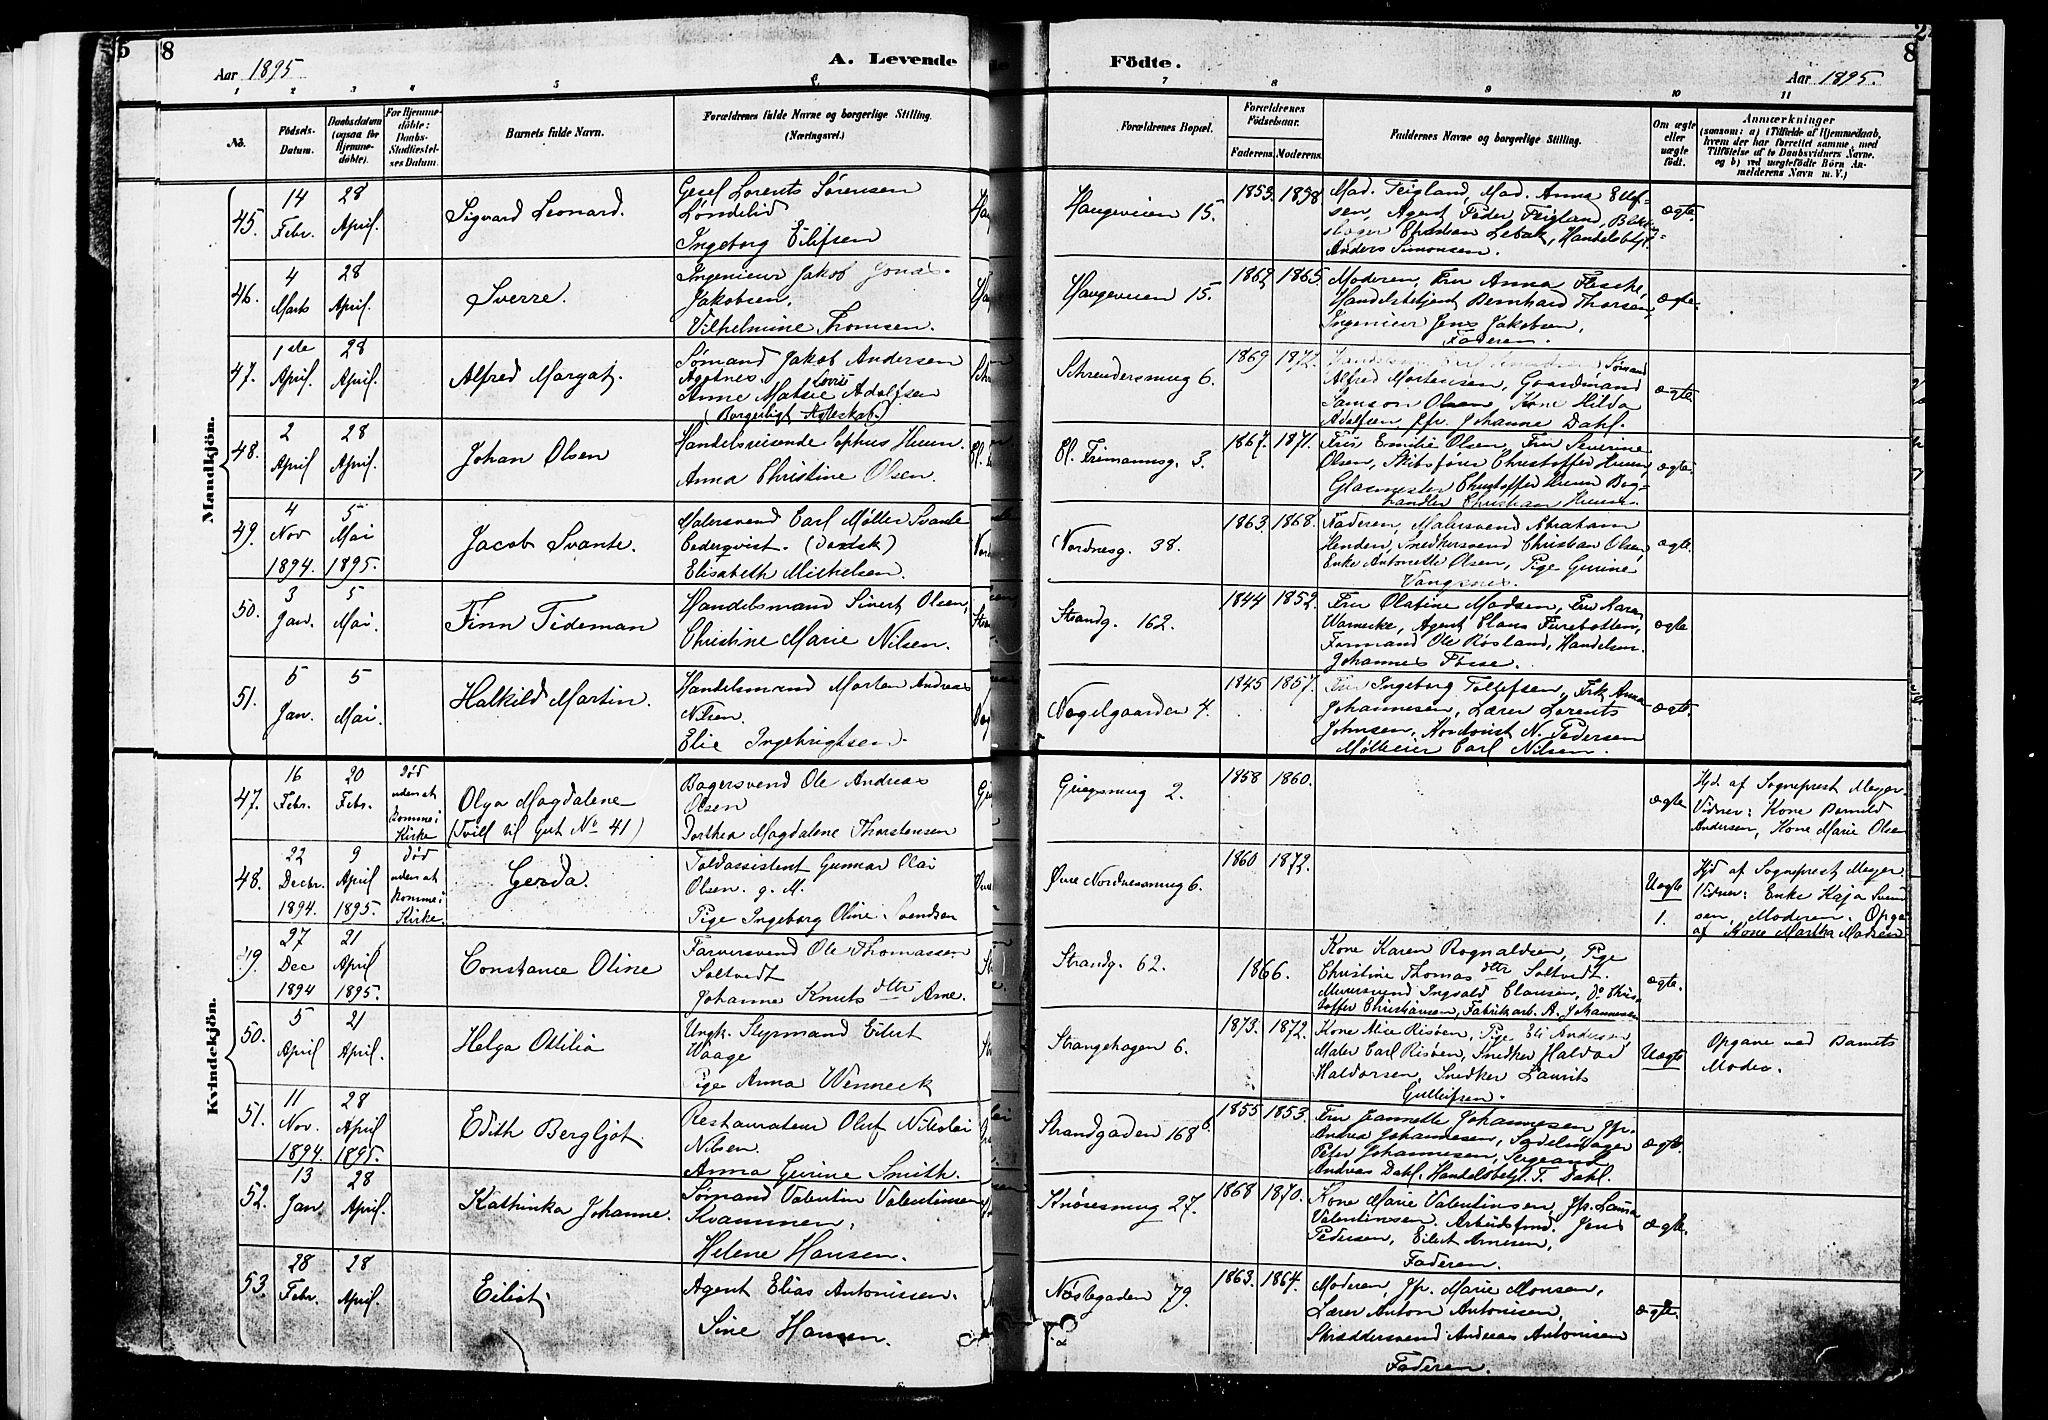 5 8
Aar 1895
A. Levende
Födte.
Aar 1895.
8
1 2 3 4 5 6 7 8 9 10 11
No.
Födsels-
Datum.
Daabsdatum
(ogsaa for
Hjemme-
döbte).
For Hjemme-
döbte:
Daabs-
Stadfæstel-
ses Datum.
Barnets fulde Navn.
Forældrenes fulde Navne og borgerlige Stilling.
(Næringsvei.)
Forældrenes Bopæl.
Forældrenes
Födselsaar.
Faderens. Moderens.
Faddernes Navne og borgerlige Stilling.
Om ægte
eller
uægte
födt.
Anmærkninger
(saasom: a) i Tilfælde af Hjemmedaab,
hvem der har forrettet samme, med
Tilföielse af to Daabsvidners Navne.
og b) ved uægtefödte Börn An-
melderens Navn m. V.)
Mandkjön.
45.
14
Febr.
28
April.
Sigvard Leonard.
Lorents Sørensen
Løndelid
Ingeborg Eilifsen
Haugeveien 15.
1853.
Mad. Teigland, Mad. Anna
sen, Agent Peder Teigland,
Lebak, Handelsbetj.
Anders Simonsen.
ægte.
46.
4
Marts
28
April.
Sverre.
Ingenieur Jakob Jonas
Jakobsen,
Vilhelmine Thomsen.
Haugeveien 15.
1862 1865.
Moderen, Fru Anna Flesche,
Handelsbetjent Bernhard Thorsen,
Ingenieur Jens Jakobsen,
Faderen.
ægte.
47.
1ste
April.
28
April.
Alfred Margat.
Sømand Jakob Andersen
Agotnes.
Anne Adolfsen
(Borgerligt Ægteskab.)
Schreudersmug 6.
1869 1872.
Sømand
Alfred Mortensen, Gaardmand
Samson Olsen, Kone Hilda
Adolfsen Jfr. Johanne Dahl.
ægte
48.
2
April
28
April.
Johan Olsen
Handelsreisende Sophus Huun.
Anna Christine Olsen.
3.
1867. 1871.
Emilie Olsen, Fru Severine
Olsen, Skibsfører Christoffer Huun,
Glasmester Christoffer Huun Bog-
handler Christian Huun.
ægte
49.
4
Nov
1894.
5
Mai
1895.
Jacob Svante.
Malersvend Carl Møller Svante
Cederqvist. (Dansk)
Elisabeth Michelsen.
Nordnesg. 38.
1863. 1868.
Faderen, Malersvend Abraham
Henden, Snedkersvend Christian Olsen,
Enke Antonette Olsen, Pige Gurine
Vangsnes.
ægte.
50.
3
Jan.
5
Mai.
Finn Tideman
Handelsmand Sivert Olsen,
Christine Marie Nilsen.
Strandg. 162.
1844 1852.
Fru Olatine Madsen, Fru Karen
Warncke, Agent Claus Furebotten,
Formand Ole Røsland, Handelsm.
Johannes Fosse.
ægte
51.
5
Jan.
5
Mai.
Halkild Martin.
Handelsmand Morten Andreas
Nilsen.
Elie Ingebrigtsen.
Nagelgaarden 4.
1845 1857.
Fru Ingeborg Tollefsen, Frk Anna
Johannesen, Lærer Lorents
Johnsen, N. Pedersen
Carl Nilsen.
ægte.
Kvindekjön.
47.
16
Febr.
20
Febr.
død
uden at
komme i
Kirke
Olga Magdalene
(Tvill. til Gut No 41)
Bagersvend Ole Andreas
Olsen
Dorthea Magdalene Thorstensen
Griegsmug 2.
1858 1860.
ægte
Hjd. af Sogneprest Meyer.
Vidner: Kone
Andersen, Kone Marie Olsen
48.
22
Decbr.
1894.
9
April
1895.
død
uden at
komme i
Kirke.
Gerda.
Toldassistent Gunnar Olai
Olsen. g. M.
Pige Ingeborg Oline Svendsen
Øvre Nordnesmug 6.
1860 1872.
Uægte
1.
Hjd af Sogneprest Meyer.
Vidner: Enke Kaja Svend
sen, Moderen. Opga
af Kone Martha Madsen
49.
27
Dec
1894
21
April
1895.
Constance Oline
Farversvend Ole Thomassen
Soltvedt
Johanne Knutsdttr Arne.
Strandg. 62.
1866.
Kone Karen Rognaldsen, Pige
Christine Thomasdttr Soltvedt.
Murersvend Ingvald Clausen, Do Chris-
toffer Christiansen, Fabrikarb. A. Johannesen
ægte.
50.
5
April
21
April.
Helga Ottilia
Ungk. Styrmand Eilert
Waage
Pige Anna Wenneck
Strangehagen 6.
1873. 1872.
Kone Alice Risøen, Pige Eli Andersen,
Maler Carl Risøen, Snedker Haldor
Haldorsen, Snedker Laurits
Gulleifsen.
Uægte
Opgave ved Barnets
Moder.
51.
11
Nov.
1894.
28
April
1895.
Edith Bergljot.
Restauratør Oluf Nikolai
Nilsen.
Anna Gurine Smith.
Strandgaden 168
1855 1853.
Fru Jeannette Johannesen Jfr.
Andrea Johannesen, Sadelmager
Peter Johannesen, Sergeant
Andreas Dahl, Handelsbetj. F. Dahl.
ægte.
52.
13
Jan.
28
April.
Kathinka Johanne.
Sømand Valentin Valentinsen
Kvammen,
Helene Hansen.
Knøsesmug 27.
1868 1870.
Kone Marie Valentinsen, Jfr. Laura
Valentinsen. Arbeidsfmd. Jens
Pedersen, Eilert Arnesen,
Faderen.
ægte.
53.
28
Febr.
28
April.
Eilist.
Agent Elias Antonissen.
Sine Hansen.
Nøstegaden 79.
1863. 1864.
Moderen, Jfr. Marie Monsen,
Lærer Anton Antonisen,
Skræddersvend Andreas Antonisen
Faderen.
ægte.